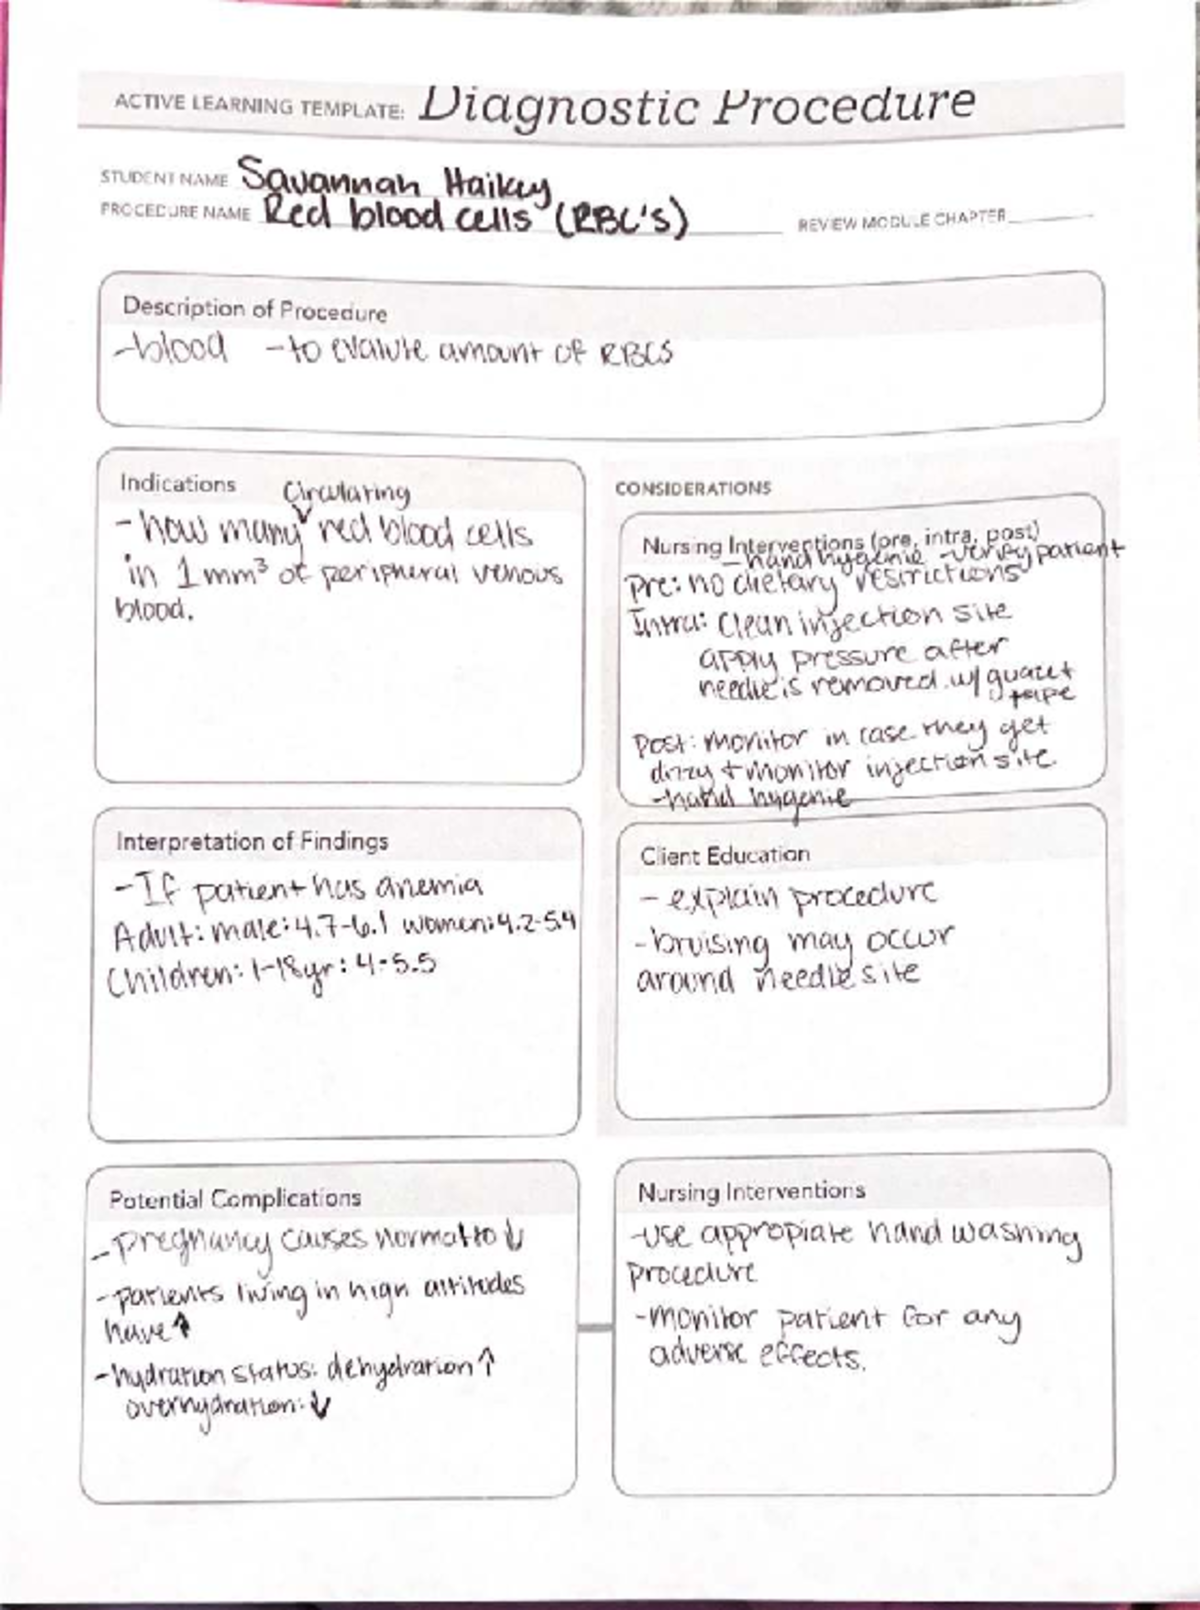 ACTIVE LEARNING TEMPLATE: Diagnostic Procedure
STUDENT NAME Savannah Haikey
PROCEDURE NAME Red blood cells (RBC's)
REVIEW MODULE CHAPTER
Description of Procedure
-blood -to evalute amount of RBCS
Indications
Circulating
-how many red blood cells
in 1mm³ of peripheral venous
blood.
CONSIDERATIONS
Nursing Interventions (pre, intra, post)
-hand hygenie -verify patient
Pre: no dietary restrictions
Intra: Clean injection site
apply pressure after
needle is removed. w/ guaze +
tape
Post: monitor in case they get
dizzy + monitor injection site
-hand hygenie
Interpretation of Findings
-If patient has anemia
Adult: male: 4.7-6.1 women: 4.2-5.4
Children: 1-18yr: 4-5.5
Client Education
- explain procedure
-bruising may occur
around needle site
Potential Complications
-pregnancy causes normal to ↓
-patients living in high altitudes
have ↑
-hydration status: dehydration ↑
overhydration: ↓
Nursing Interventions
-use appropiate hand washing
procedure
-monitor patient for any
adverse effects.